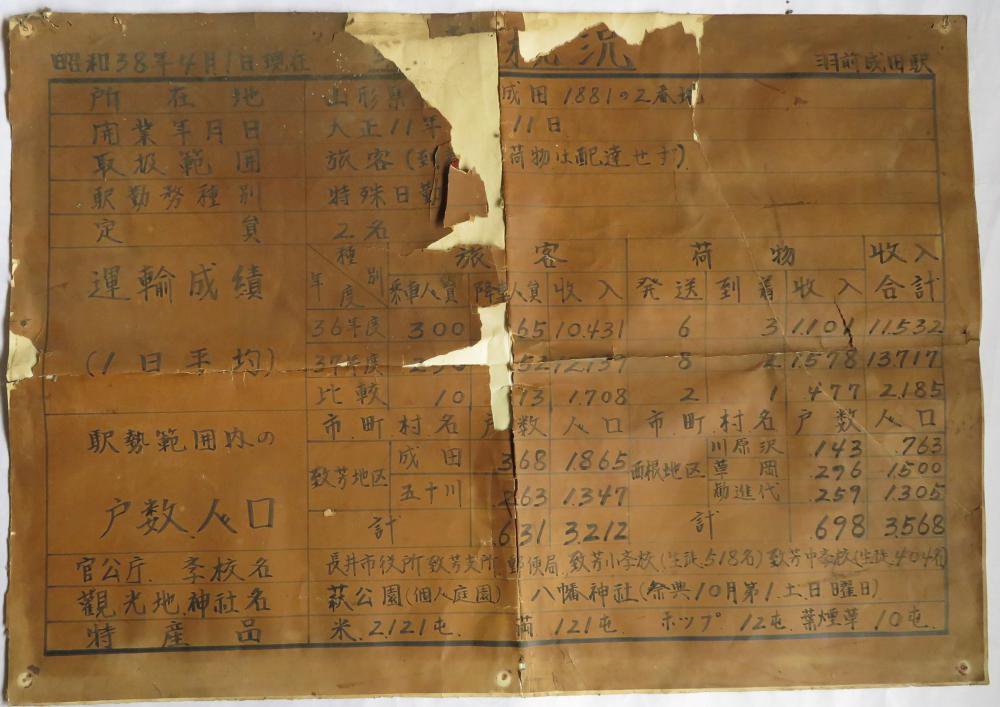 昭和38年4月1日現在 概況 羽前成田駅
所在地 山形県 成田1881の2番地
開業年月日 大正11年 11日
取扱範囲 旅客 荷物は配達せず)
駅勤務種別 特殊日勤
定員 2名
運輸成績 種別 旅客 荷物 收入
年度 乗車人員 降車人員 收入 発送 到着 收入 合計
36年度 300 65 10.431 6 3 1.101 11.532
(1日平均) 37年度 52 12.139 8 2 1.578 13.717
比較 10 13 1.708 2 1 477 2.185
駅勢範囲内の 市町村名 戸数 人口 市町村名 戸数 人口
致芳地区 成田 368 1.865 西根地区 川原沢 143 763
草岡 296 1.500
五十川 263 1.347 勧進代 259 1.305
戸数人口 計 631 3.212 計 698 3.568
官公庁.学校名 長井市役所致芳支所 郵便局.致芳小学校(生徒518名)致芳中学校(生徒404名)
觀光地神社名 萩公園(個人庭園) 八幡神社(祭典10月第1.土日曜日)
特産品 米.2121屯. 121屯. ホップ 12屯.葉煙草 10屯.